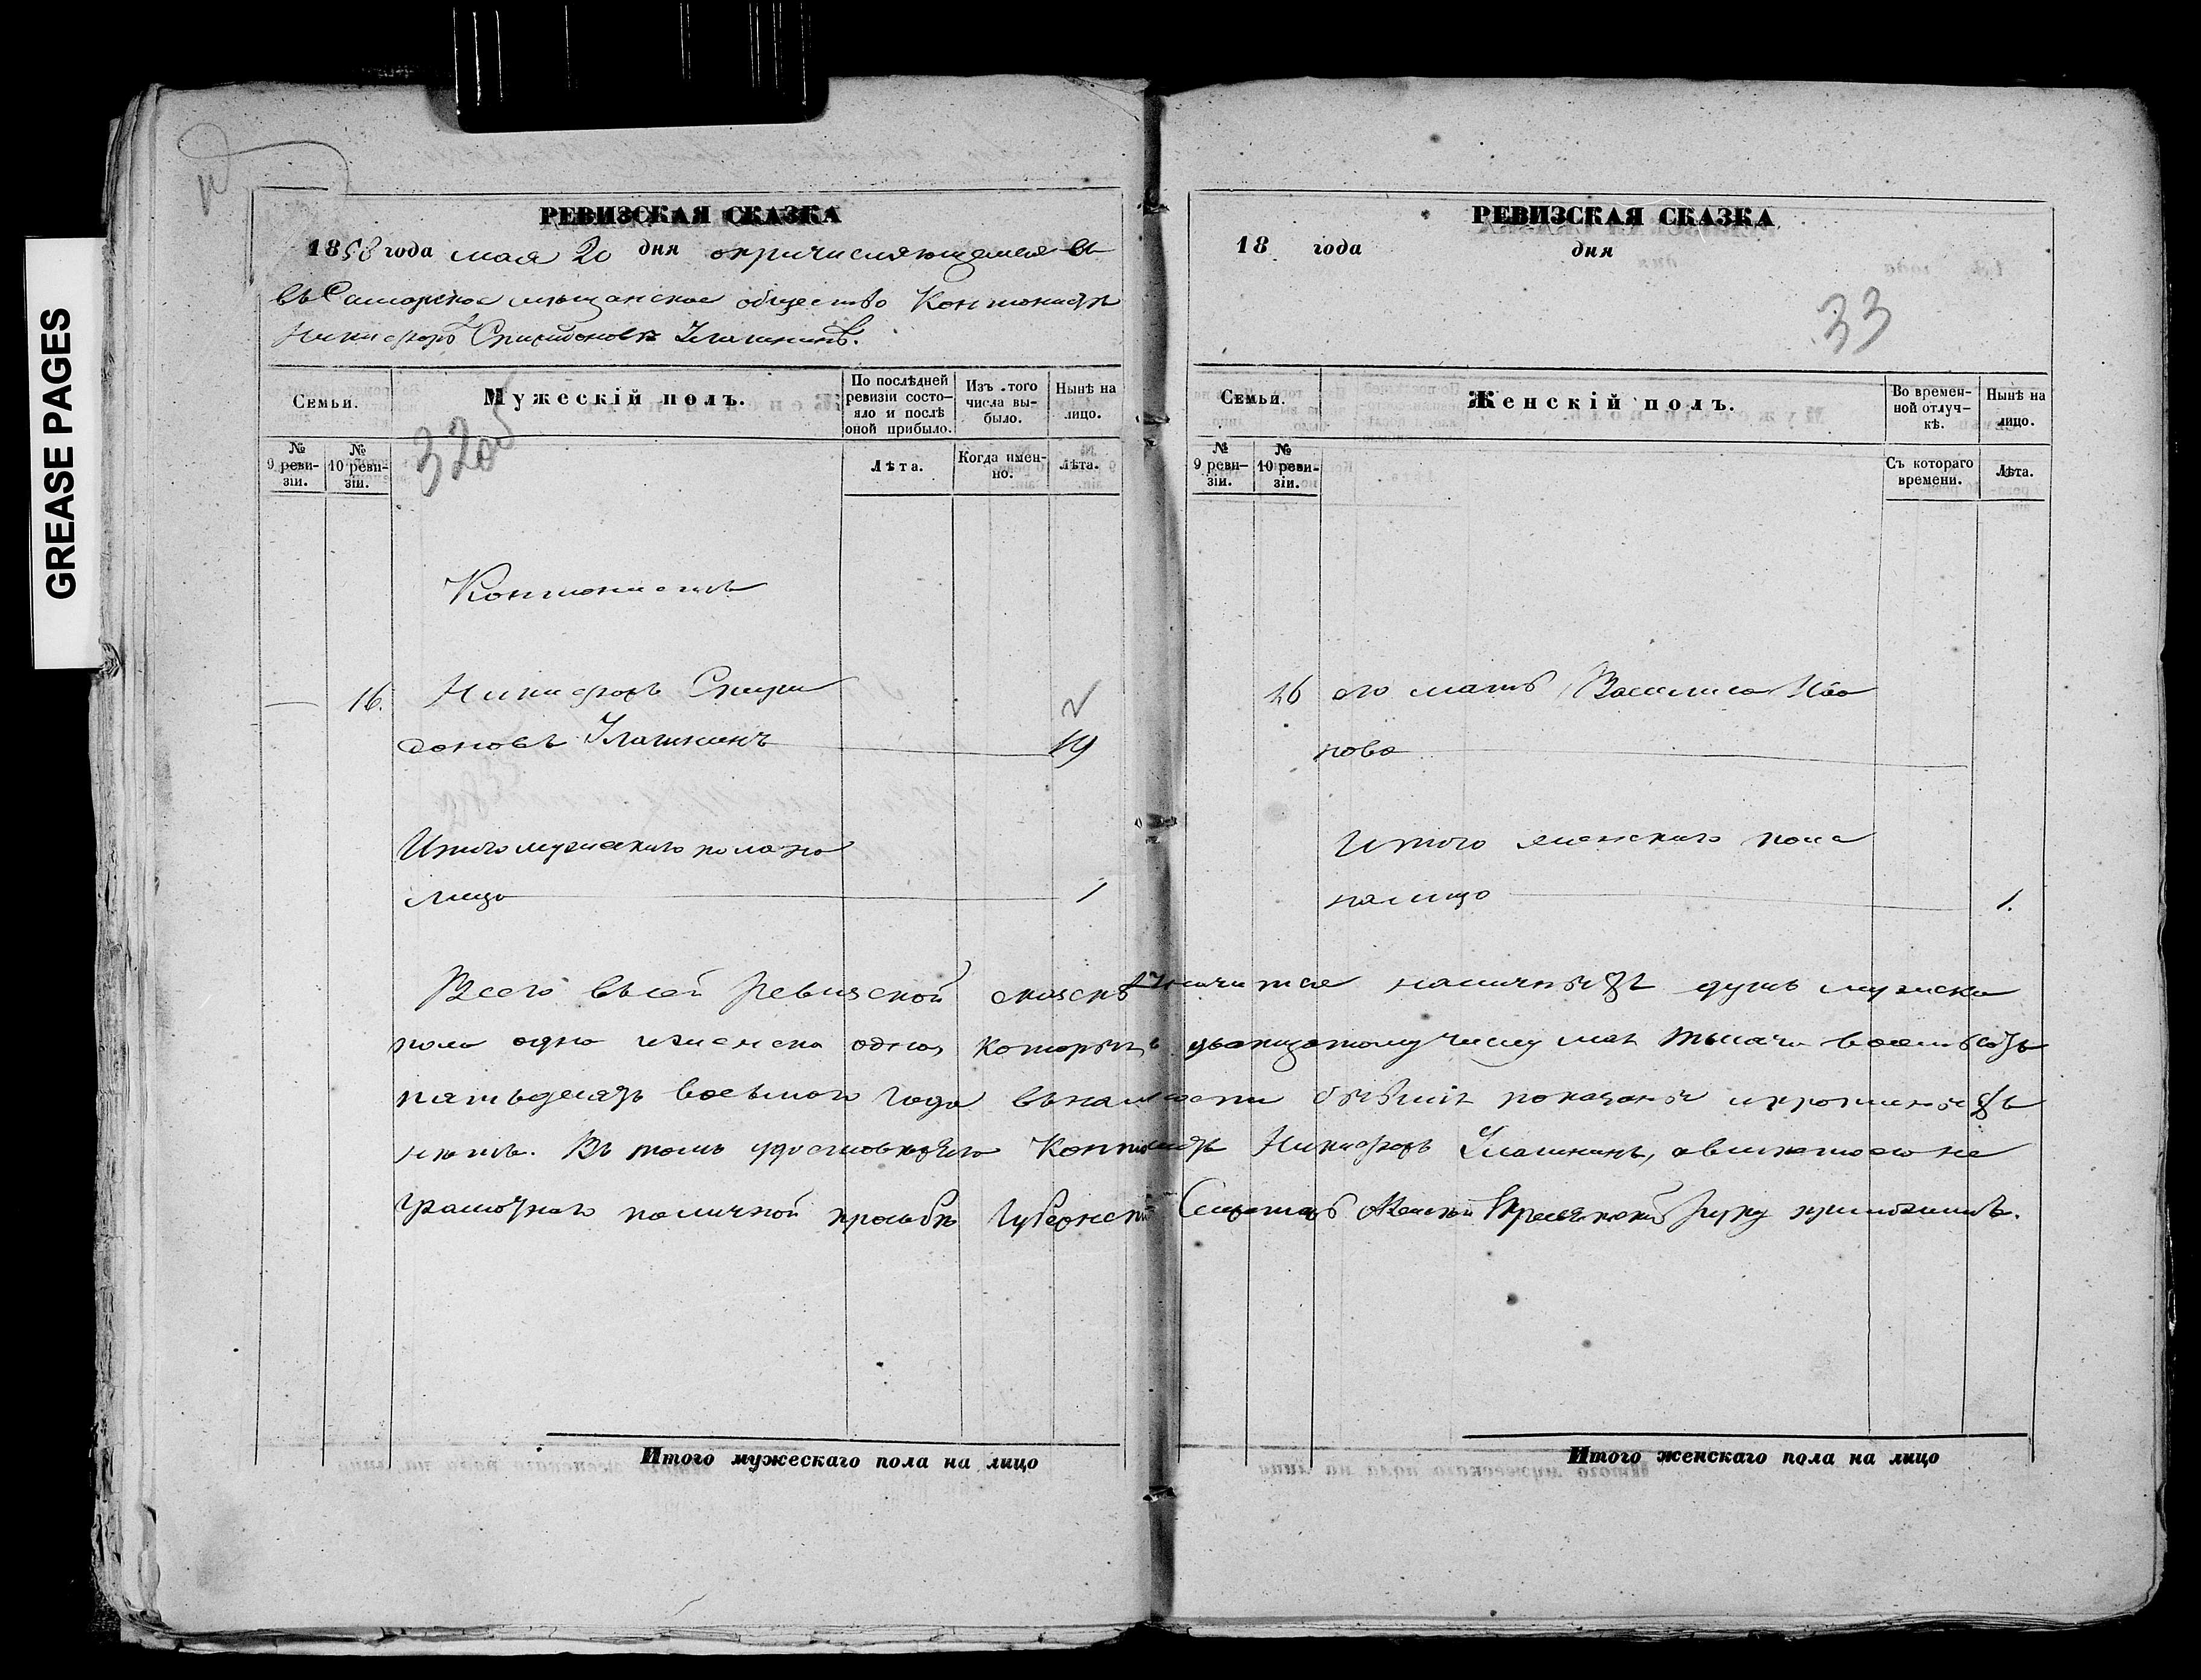 GREASE PAGES
РЕВИЗСКАЯ СКАЗКА
1858 года мая 20 дня опричисляющемся въ
въ Самарское мѣщанское общество Контонистѣ
Никифоръ Спиридоновъ
32об
Семьи.
Мужескій полъ.
По послѣдней ревизіи состояло и послѣ оной прибыло.
Изъ того числа выбыло.
Нынѣ на лицо.
№ 9 ревизіи.
№ 10 ревизіи.
Лѣта.
Когда именно.
Лѣта.
Контонистъ
16. Никифоръ Спири
доновъ 19
Итого мужескаго пола на
лицо 1
Итого мужескаго пола на лицо
РЕВИЗСКАЯ СКАЗКА
18 года дня
33
Семьи.
Женскій полъ.
Во временной отлучкѣ.
Нынѣ на лицо.
№ 9 ревизіи.
№ 10 ревизіи.
Съ котораго времени.
Лѣта.
16 его мать Василиса
нова
Итого женскаго пола
налицо 1.
Всего въсей ревизской сказкѣ значится наличныхъ душъ мужска
пола одна иженска одна, которыя к двадцатому числу мая тысяча восемьсотъ
пятьдесятъ восьмого года въналичности бывшія показаны ипрописныхъ
нѣтъ. Въ томъ удостовѣряю Контонистъ Никифоръ авмѣсто его не
грамотнаго поличной прозьбѣ Губернскій Секретарь руку приложилъ.
Итого женскаго пола на лицо